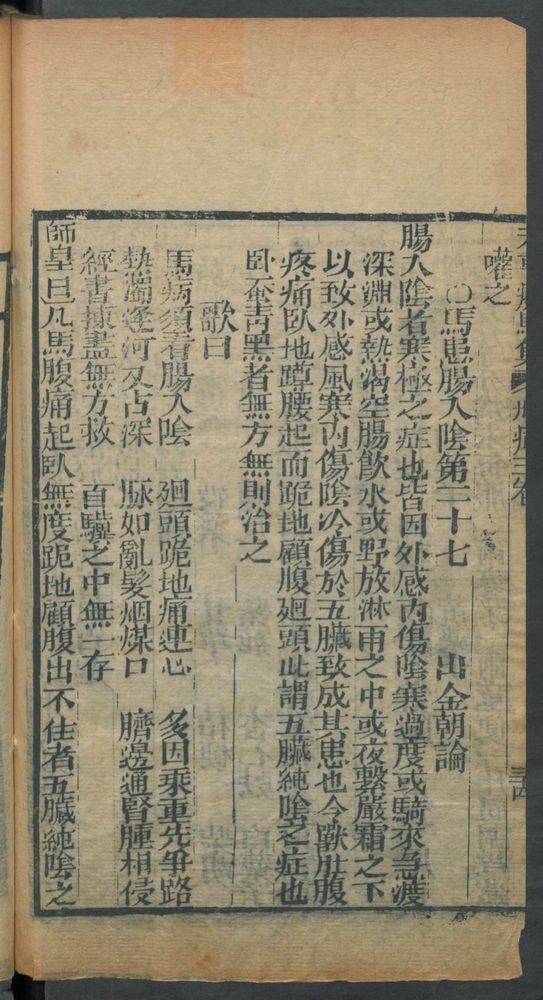 元亨療馬集 病症三卷 三古
嚾之
○馬患腸入陰第二十七 出金朝論
腸入陰者寒極之症也皆因外感内傷陰寒過度或騎來急渡
深淵或熱渴空腸飲水或野放淋雨之中或夜繫嚴霜之下
以致外感風寒内傷陰冷傷於五臟致成其患也令獸肚腹
疼痛臥地蹲腰起而跪地顧腹廻頭此謂五臟純陰之症也
卧蚕青黑者無方無則治之
歌曰
馬病須看腸入陰 廻頭跪地痛連心 多因乘重先爭路
熱渴逢河又占深 脉如亂髮烟煤口 臍邊通腎腫相侵
經書據盡無方救 百驥之中無一存
師皇曰凡馬腹痛起臥無度跪地顧腹出不住者五臟純陰之